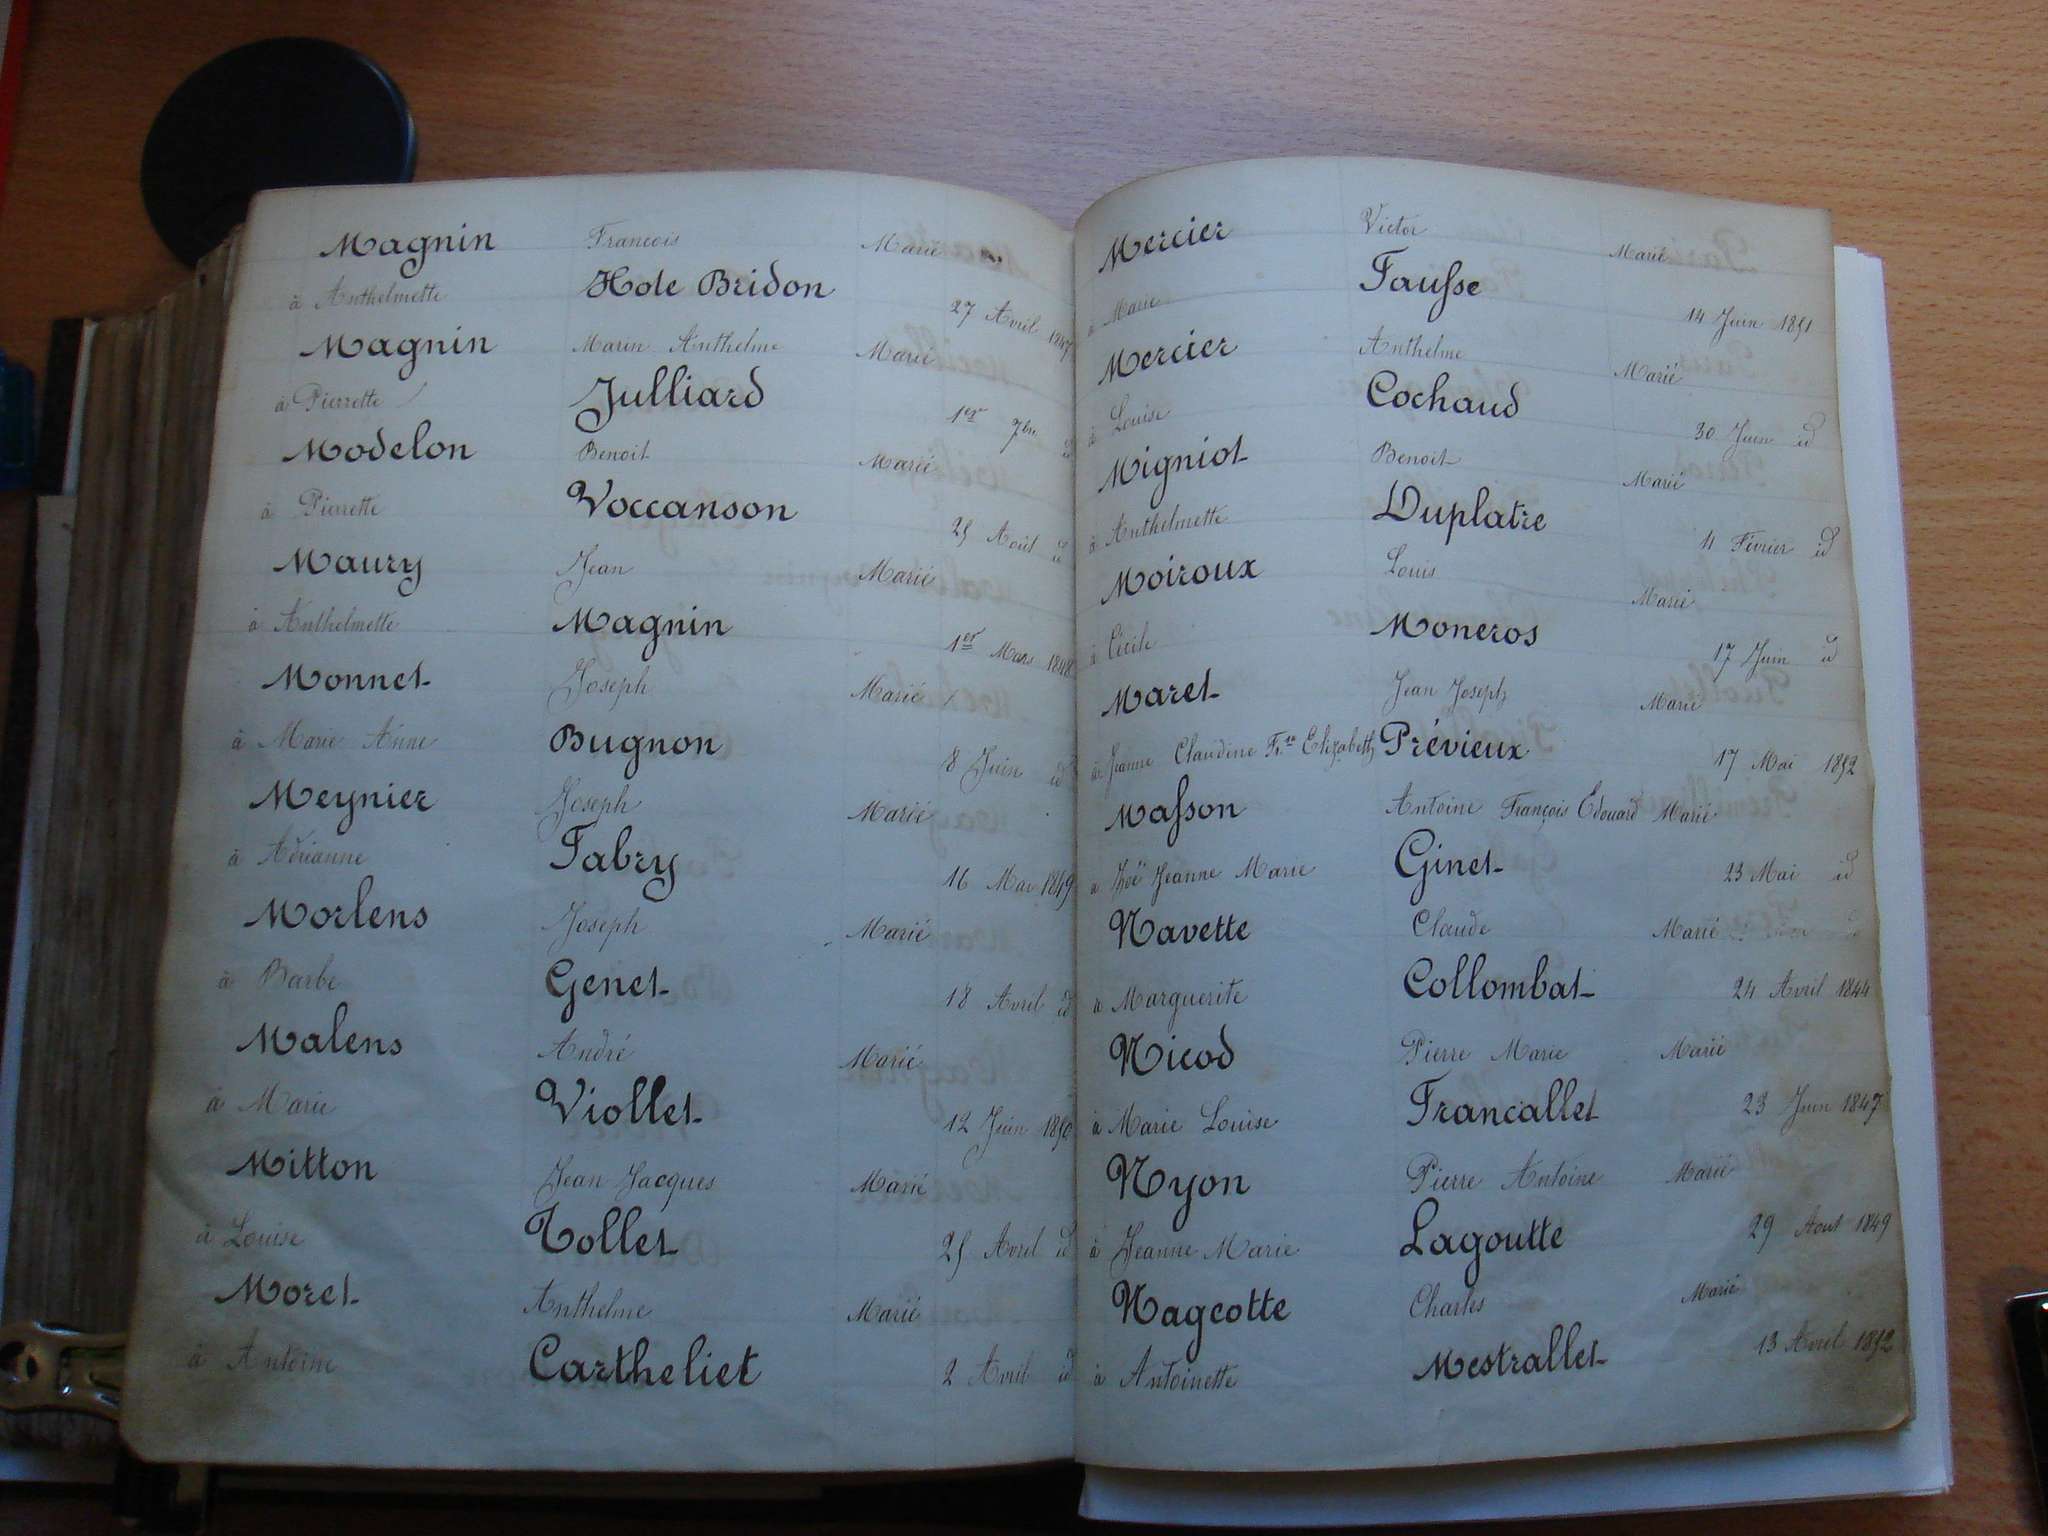 Magnin François Marié
à Anthelmette Hote Bridon 27 Avril 1847
Magnin Marin Anthelme Marié
à Pierrette Julliard 1er 7bre id
Modelon Benoit Marié
à Pierrette Voccanson 25 Août id
Maury Jean Marié
à Anthelmette Magnin 1er Mars 1848
Monnet Joseph Marié
à Marie Anne Bugnon 8 Juin id
Meynier Joseph Marié
à Adrianne Fabry 16 Mai 1849
Morlens Joseph Marié
à Barbe Genet 18 Avril id
Malens André Marié
à Marie Viollet 12 Juin 1850
Mitton Jean Jacques Marié
à Louise Tollet 25 Avril id
Moret Anthelme Marié
à Antoine Cartheliet 2 Avril id
Mercier Victor Marié
à Marie Fausse 14 Juin 1851
Mercier Anthelme Marié
à Louise Cochaud 30 Juin id
Migniot Benoit Marié
à Anthelmette Duplatre 11 Février id
Moiroux Louis Marié
à Cécile Moneros 17 Juin id
Maret Jean Joseph Marié
à Jeanne Claudine Fse Elizabeth Prévieux 17 Mai 1852
Masson Antoine François Edouard Marié
à Zoë Jeanne Marie Ginet 23 Mai id
Navette Claude Marié
à Marguerite Collombat 24 Avril 1844
Nicod Pierre Marie Marié
à Marie Louise Francallet 23 Juin 1847
Nyon Pierre Antoine Marié
à Jeanne Marie Lagoutte 29 Aout 1849
Nageotte Charles Marié
à Antoinette Mestrallet 13 Avril 1852